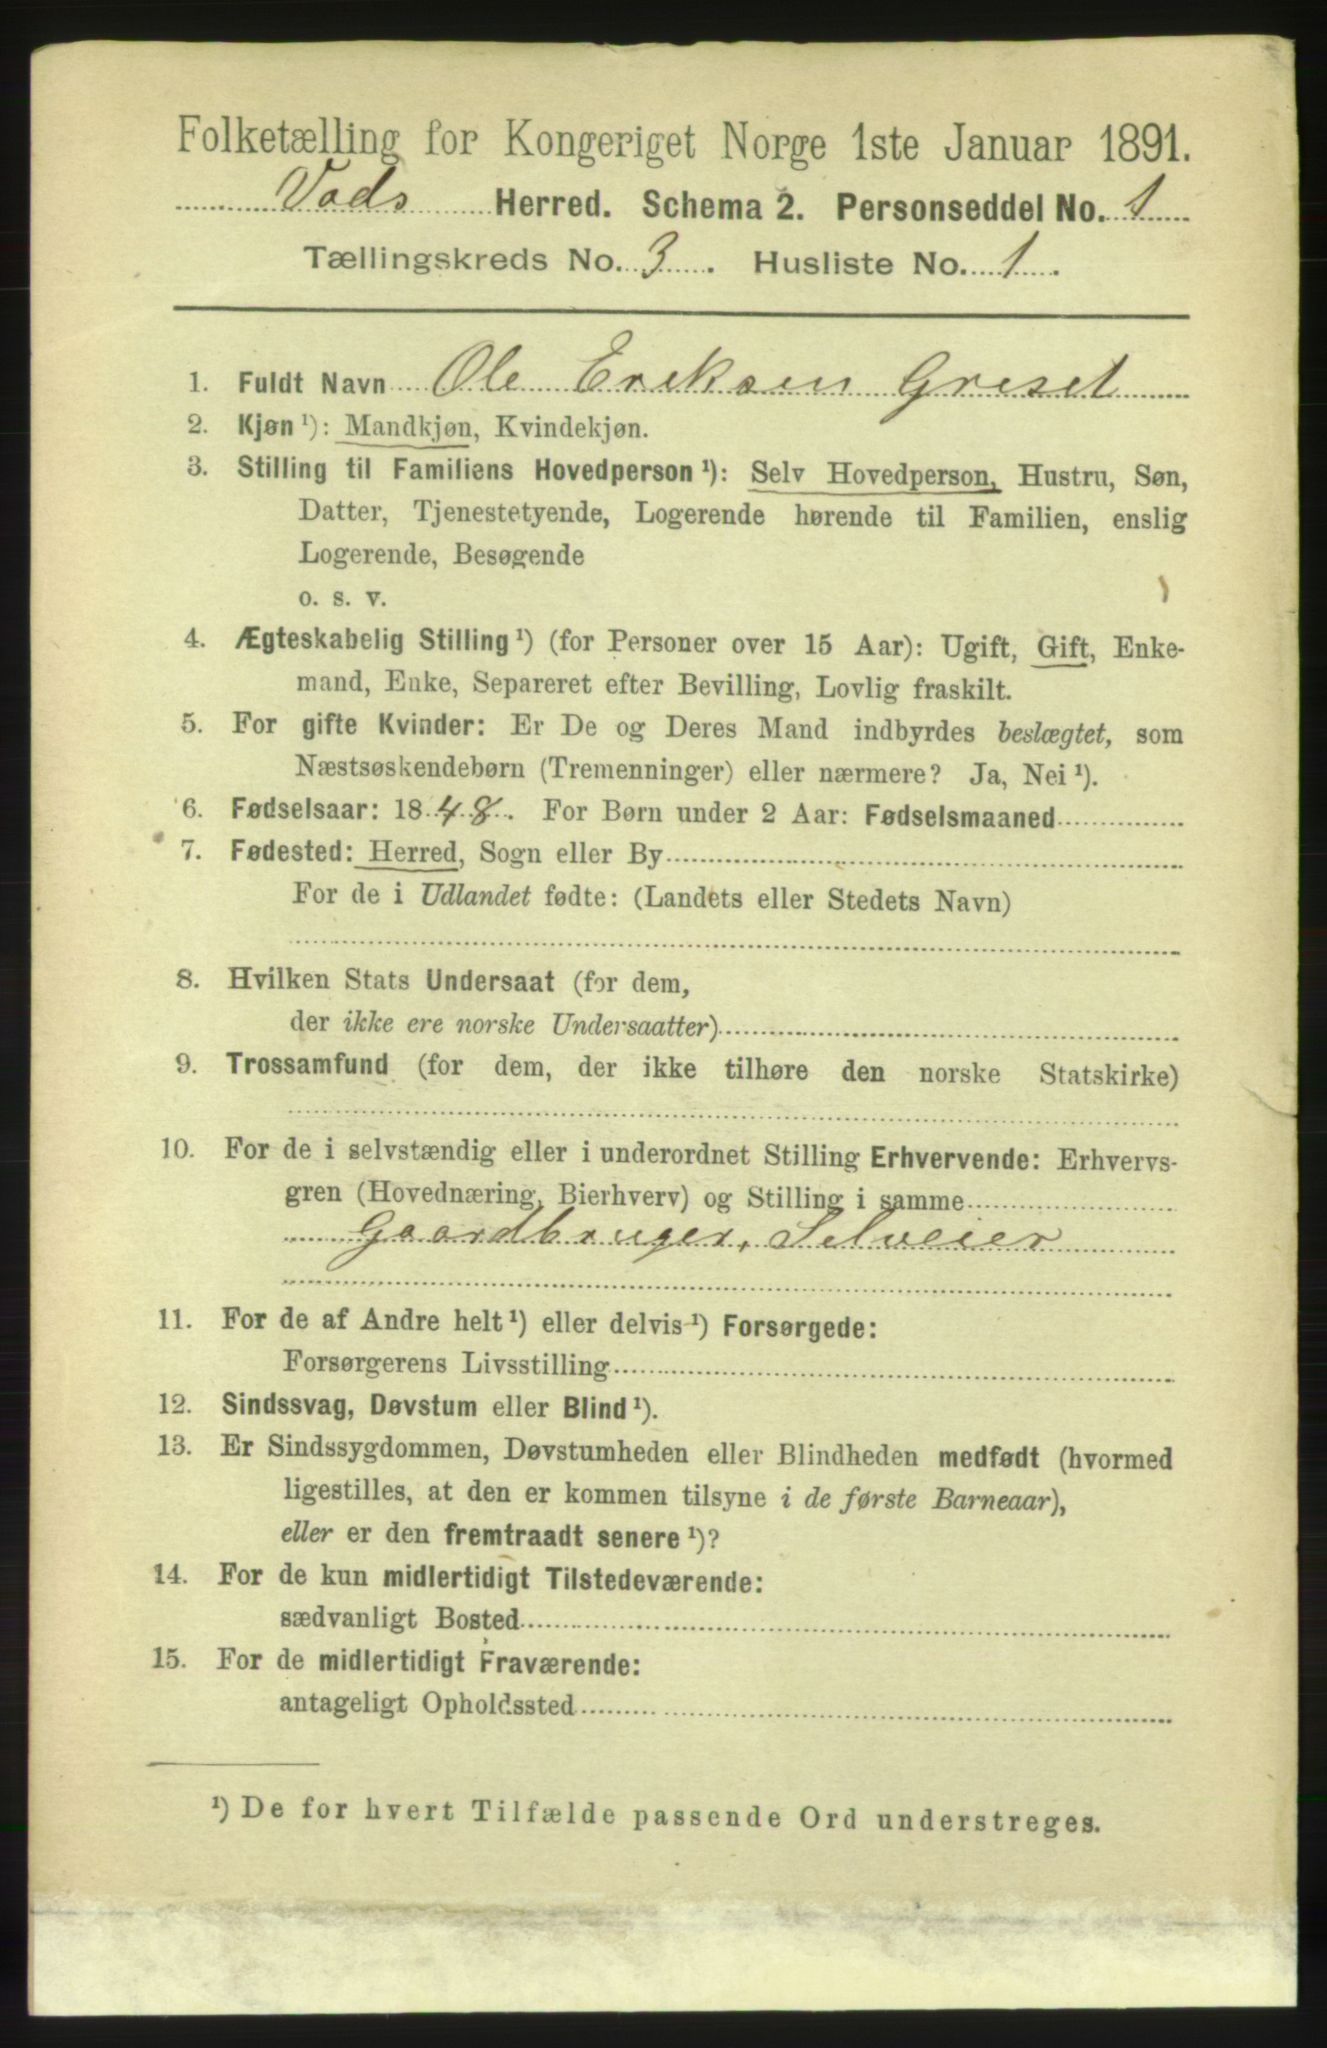 Folketælling for Kongeriget Norge 1ste Januar 1891.
Vads Herred. Schema 2. Personseddel No. 1
Tællingskreds No. 3. Husliste No. 1.
1. Fuldt Navn Ole Eriksen Griset
2. Kjøn ¹): Mandkjøn, Kvindekjøn.
3. Stilling til Familiens Hovedperson ¹): Selv Hovedperson, Hustru, Søn,
Datter, Tjenestetyende, Logerende hørende til Familien, enslig
Logerende, Besøgende
o. s. v.
4. Ægteskabelig Stilling ¹) (for Personer over 15 Aar): Ugift, Gift, Enke-
mand, Enke, Separeret efter Bevilling, Lovlig fraskilt.
5. For gifte Kvinder: Er De og Deres Mand indbyrdes beslægtet, som
Næstsøskendebørn (Tremenninger) eller nærmere? Ja, Nei ¹).
6. Fødselsaar: 1848. For Børn under 2 Aar: Fødselsmaaned
7. Fødested: Herred, Sogn eller By
For de i Udlandet fødte: (Landets eller Stedets Navn)
8. Hvilken Stats Undersaat (for dem,
der ikke ere norske Undersaatter)
9. Trossamfund (for dem, der ikke tilhøre den norske Statskirke)
10. For de i selvstændig eller i underordnet Stilling Erhvervende: Erhvervs-
gren (Hovednæring, Bierhverv) og Stilling i samme
Gaardbruger, Selveier
11. For de af Andre helt ¹) eller delvis ¹) Forsørgede:
Forsørgerens Livsstilling
12. Sindssvag, Døvstum eller Blind ¹).
13. Er Sindssygdommen, Døvstumheden eller Blindheden medfødt (hvormed
ligestilles, at den er kommen tilsyne i de første Barneaar),
eller er den fremtraadt senere ¹)?
14. For de kun midlertidigt Tilstedeværende:
sædvanligt Bosted
15. For de midlertidigt Fraværende:
antageligt Opholdssted
¹) De for hvert Tilfælde passende Ord understreges.